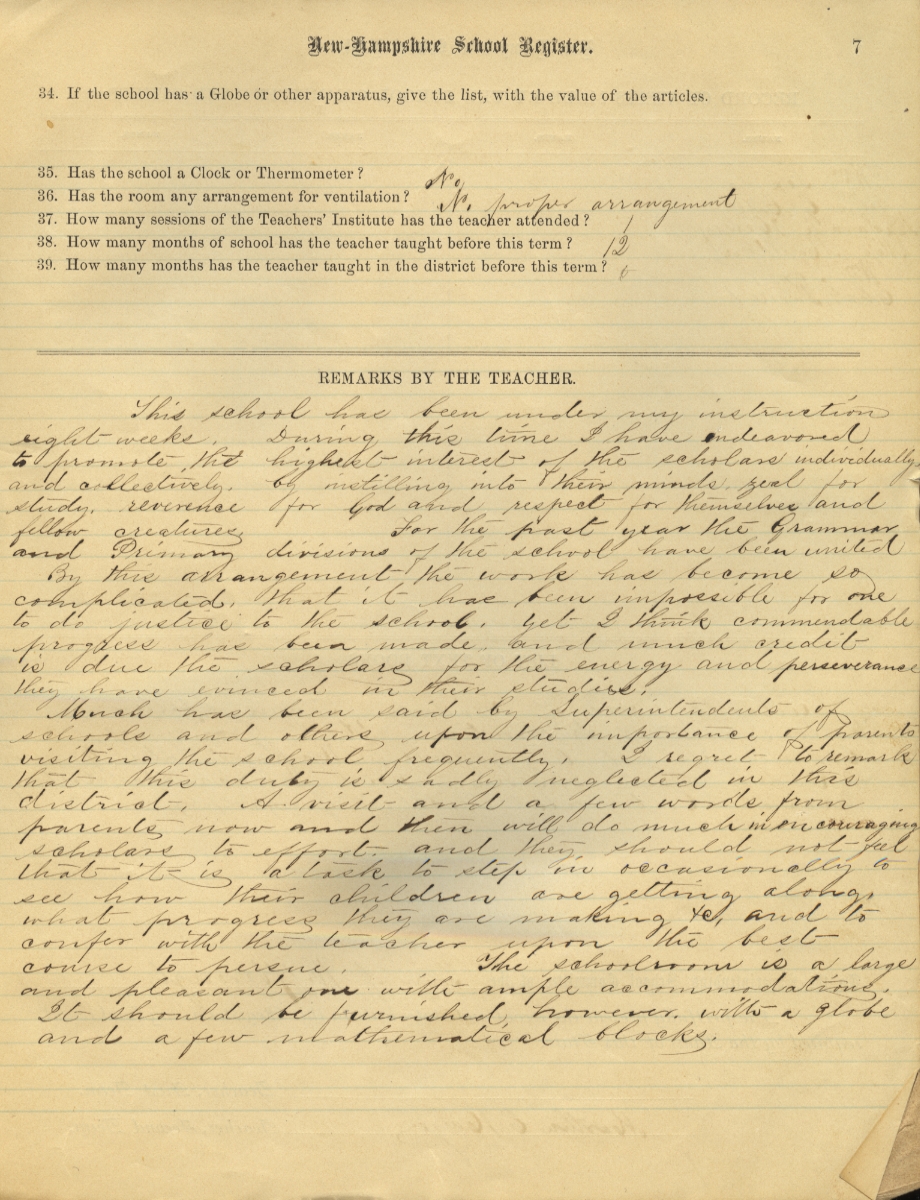 New-Hampshire School Register.
7
34. If the school has a Globe or other apparatus, give the list, with the value of the articles.
35. Has the school a Clock or Thermometer? No
36. Has the room any arrangement for ventilation? No. proper arrangement
37. How many sessions of the Teachers' Institute has the teacher attended? 1
38. How many months of school has the teacher taught before this term? 12
39. How many months has the teacher taught in the district before this term?
REMARKS BY THE TEACHER.
This school has been under my instruction
eight weeks. During this time I have endeavored
to promote the highest interest of the scholars individually
and collectively. by instilling into their minds. zeal for
study, reverence for God and respect for themselves and
fellow creatures. For the past year the Grammar
and Primary divisions of the school have been united
By this arrangement the work has become so
complicated, that it has been impossible for one
to do justice to the school. yet I think commendable
progress has been made. and much credit
is due the scholars for the energy and perseverance
they have evinced in their studies.
Much has been said by Superintendents of
schools and others upon the importance of parents
visiting the school frequently. I regret to remark
that this duty is sadly neglected in this
district. A visit and a few words from
parents now and then will do much in encouraging
scholars to effort. and they should not feel
that it is a task to step in occasionally to
see how their children are getting along,
what progress they are making &c, and to
confer with the teacher upon the best
course to persue. The schoolroom is a large
and pleasant one with ample accommodations.
It should be furnished, however, with a globe
and a few mathematical blocks.